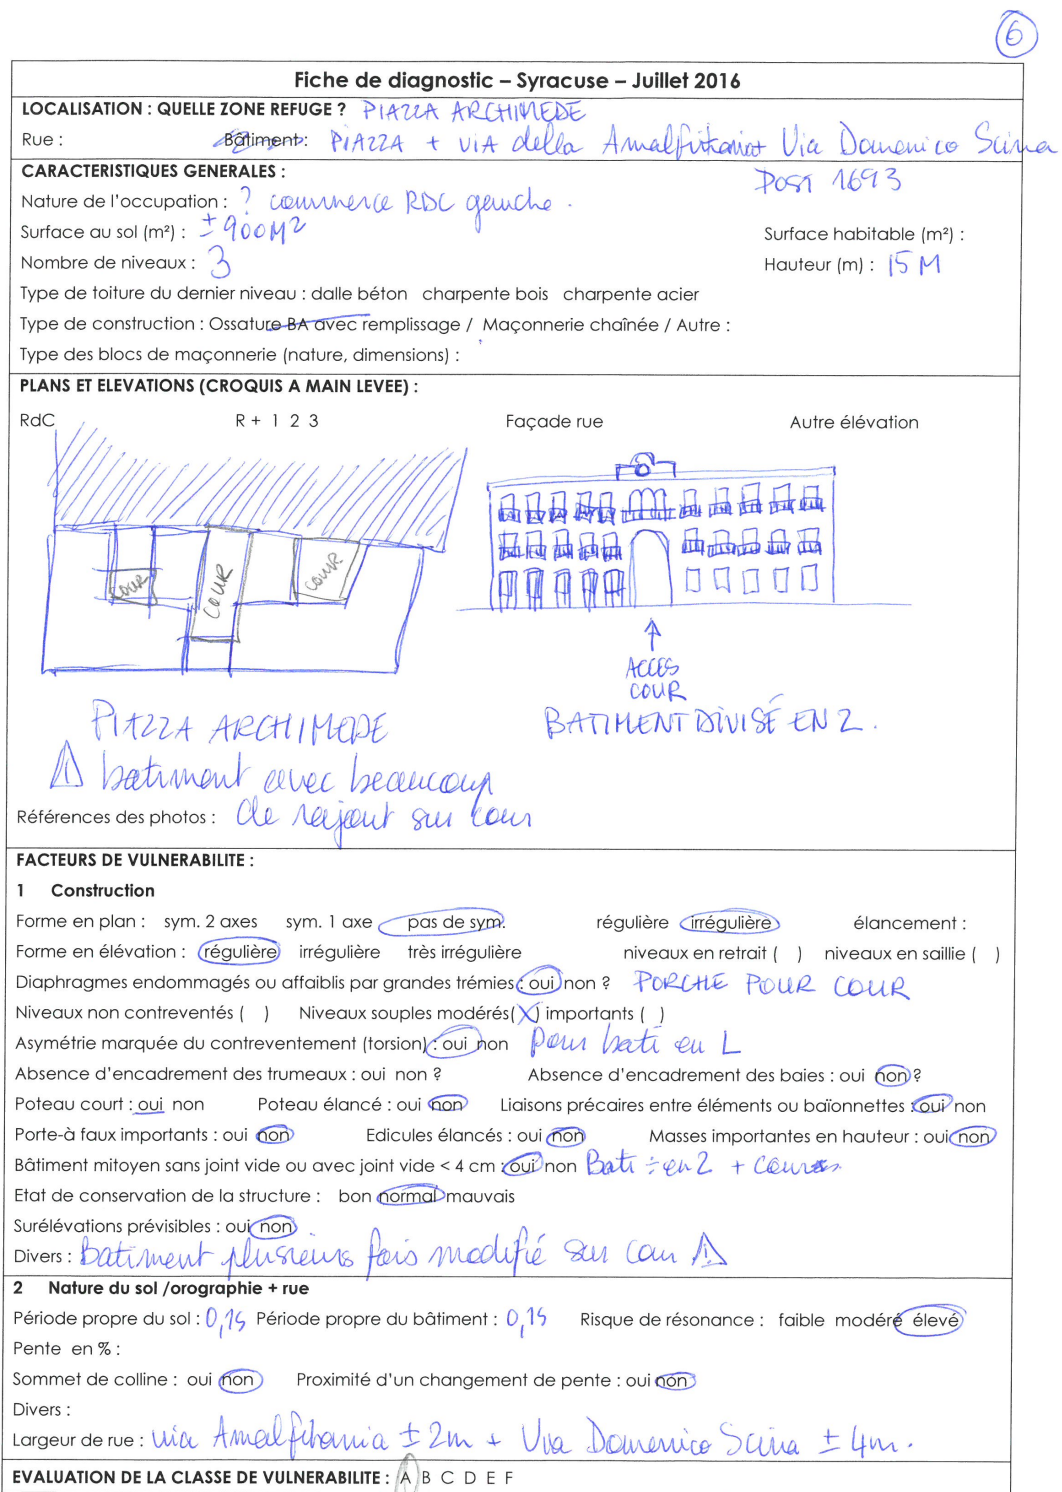 6
Fiche de diagnostic – Syracuse – Juillet 2016
LOCALISATION : QUELLE ZONE REFUGE ? PIAZZA ARCHIMEDE
Rue : Bâtiment : PIAZZA + VIA della Amalfitania + Via Domenico Scina
CARACTERISTIQUES GENERALES : POST 1693
Nature de l'occupation : ? commerce RDC gauche.
Surface au sol (m²) : ± 900 M2 Surface habitable (m²) :
Nombre de niveaux : 3 Hauteur (m) : 15 M
Type de toiture du dernier niveau : dalle béton charpente bois charpente acier
Type de construction : Ossature BA avec remplissage / Maçonnerie chaînée / Autre :
Type des blocs de maçonnerie (nature, dimensions) :
PLANS ET ELEVATIONS (CROQUIS A MAIN LEVEE) :
RdC R + 1 2 3 Façade rue Autre élévation
COUR COUR COUR
ACCES
COUR
PIAZZA ARCHIMEDE BATIMENT DIVISÉ EN 2.
! batiment avec beaucoup
Références des photos : de rajout sur cour
FACTEURS DE VULNERABILITE :
1 Construction
Forme en plan : sym. 2 axes sym. 1 axe pas de sym. régulière irrégulière élancement :
Forme en élévation : régulière irrégulière très irrégulière niveaux en retrait ( ) niveaux en saillie ( )
Diaphragmes endommagés ou affaiblis par grandes trémies : oui non ? PORCHE POUR COUR
Niveaux non contreventés ( ) Niveaux souples modérés (X) importants ( )
Asymétrie marquée du contreventement (torsion) : oui non pour bati en L
Absence d'encadrement des trumeaux : oui non ? Absence d'encadrement des baies : oui non ?
Poteau court : oui non Poteau élancé : oui non Liaisons précaires entre éléments ou baïonnettes : oui non
Porte-à faux importants : oui non Edicules élancés : oui non Masses importantes en hauteur : oui non
Bâtiment mitoyen sans joint vide ou avec joint vide < 4 cm : oui non Bati ÷ en 2 + cours
Etat de conservation de la structure : bon normal mauvais
Surélévations prévisibles : oui non
Divers : Batiment plusieurs fois modifié sur cour !
2 Nature du sol /orographie + rue
Période propre du sol : 0,1s Période propre du bâtiment : 0,1s Risque de résonance : faible modéré élevé
Pente en % :
Sommet de colline : oui non Proximité d'un changement de pente : oui non
Divers :
Largeur de rue : via Amalfitania ± 2m + Via Domenico Scina ± 4m.
EVALUATION DE LA CLASSE DE VULNERABILITE : A B C D E F